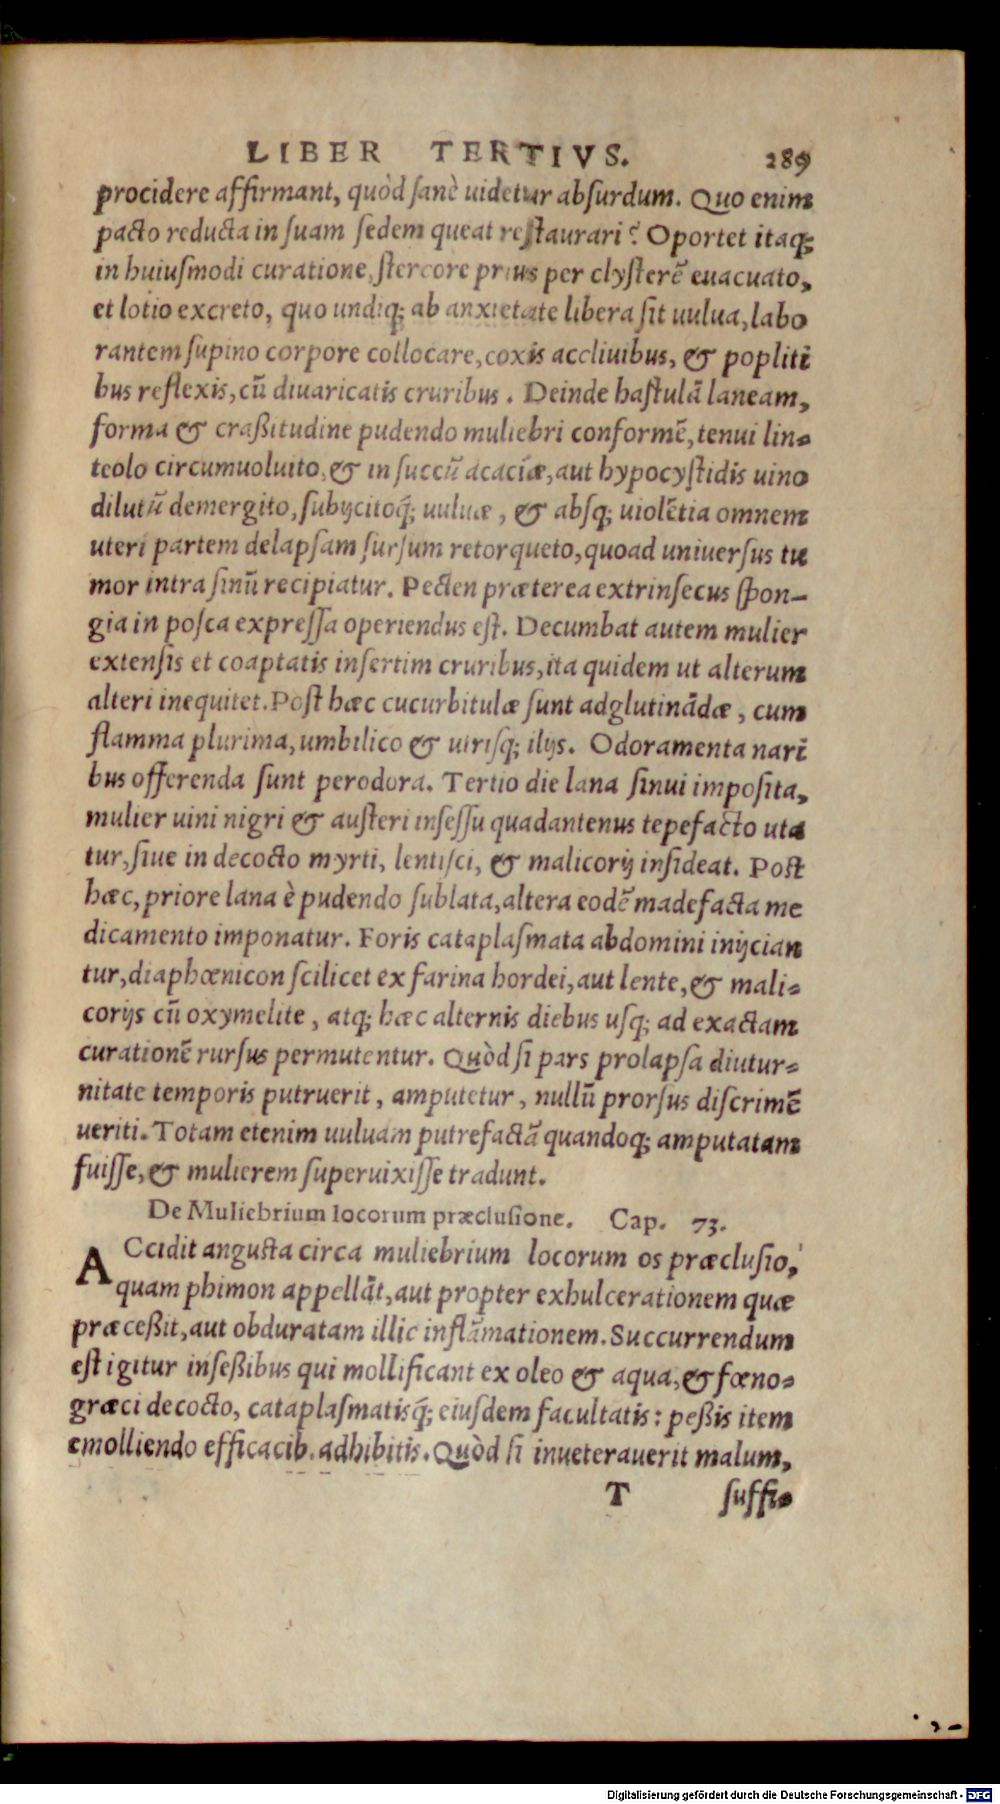 LIBER TERTIVS. 289
procidere affirmant, quòd sanè uidetur absurdum. Quo enim
pacto reducta in suam sedem queat restaurari? Oportet itaq;
in huiusmodi curatione, stercore prius per clysterē euacuato,
et lotio excreto, quo undiq; ab anxietate libera sit uulua, labo
rantem supino corpore collocare, coxis accliuibus, & popliti
bus reflexis, cū diuaricatis cruribus. Deinde hastulā laneam,
forma & craßitudine pudendo muliebri conformē, tenui lin=
teolo circumuoluito, & in succū acaciæ, aut hypocystidis uino
dilutū demergito, subijcitoq́; uuluæ, & absq; uiolētia omnem
uteri partem delapsam sursum retorqueto, quoad uniuersus tu
mor intra sinū recipiatur. Pecten præterea extrinsecus spon-
gia in posca expressa operiendus est. Decumbat autem mulier
extensis et coaptatis insertim cruribus, ita quidem ut alterum
alteri inequitet. Post hæc cucurbitulæ sunt adglutinādæ, cum
flamma plurima, umbilico & utrisq; ilijs. Odoramenta nari
bus offerenda sunt perodora. Tertio die lana sinui imposita,
mulier uini nigri & austeri insessu quadantenus tepefacto uta
tur, siue in decocto myrti, lentisci, & malicorij insideat. Post
hæc, priore lana è pudendo sublata, altera eodē madefacta me
dicamento imponatur. Foris cataplasmata abdomini inijcian
tur, diaphœnicon scilicet ex farina hordei, aut lente, & mali=
corijs cū oxymelite, atq; hæc alternis diebus usq; ad exactam
curationē rursus permutentur. Quòd si pars prolapsa diutur=
nitate temporis putruerit, amputetur, nullū prorsus discrimē
ueriti. Totam etenim uuluam putrefactā quandoq; amputatam
fuisse, & mulierem superuixisse tradunt.
De Muliebrium locorum præclusione. Cap. 73.
ACcidit angusta circa muliebrium locorum os præclusio,
quam phimon appellāt, aut propter exhulcerationem quæ
præceßit, aut obduratam illic inflāmationem. Succurrendum
est igitur inseßibus qui mollificant ex oleo & aqua, & fœno=
græci decocto, cataplasmatisq́; eiusdem facultatis: peßis item
emolliendo efficacib. adhibitis. Quòd si inueterauerit malum,
T suffi=
Digitalisierung gefördert durch die Deutsche Forschungsgemeinschaft - DFG